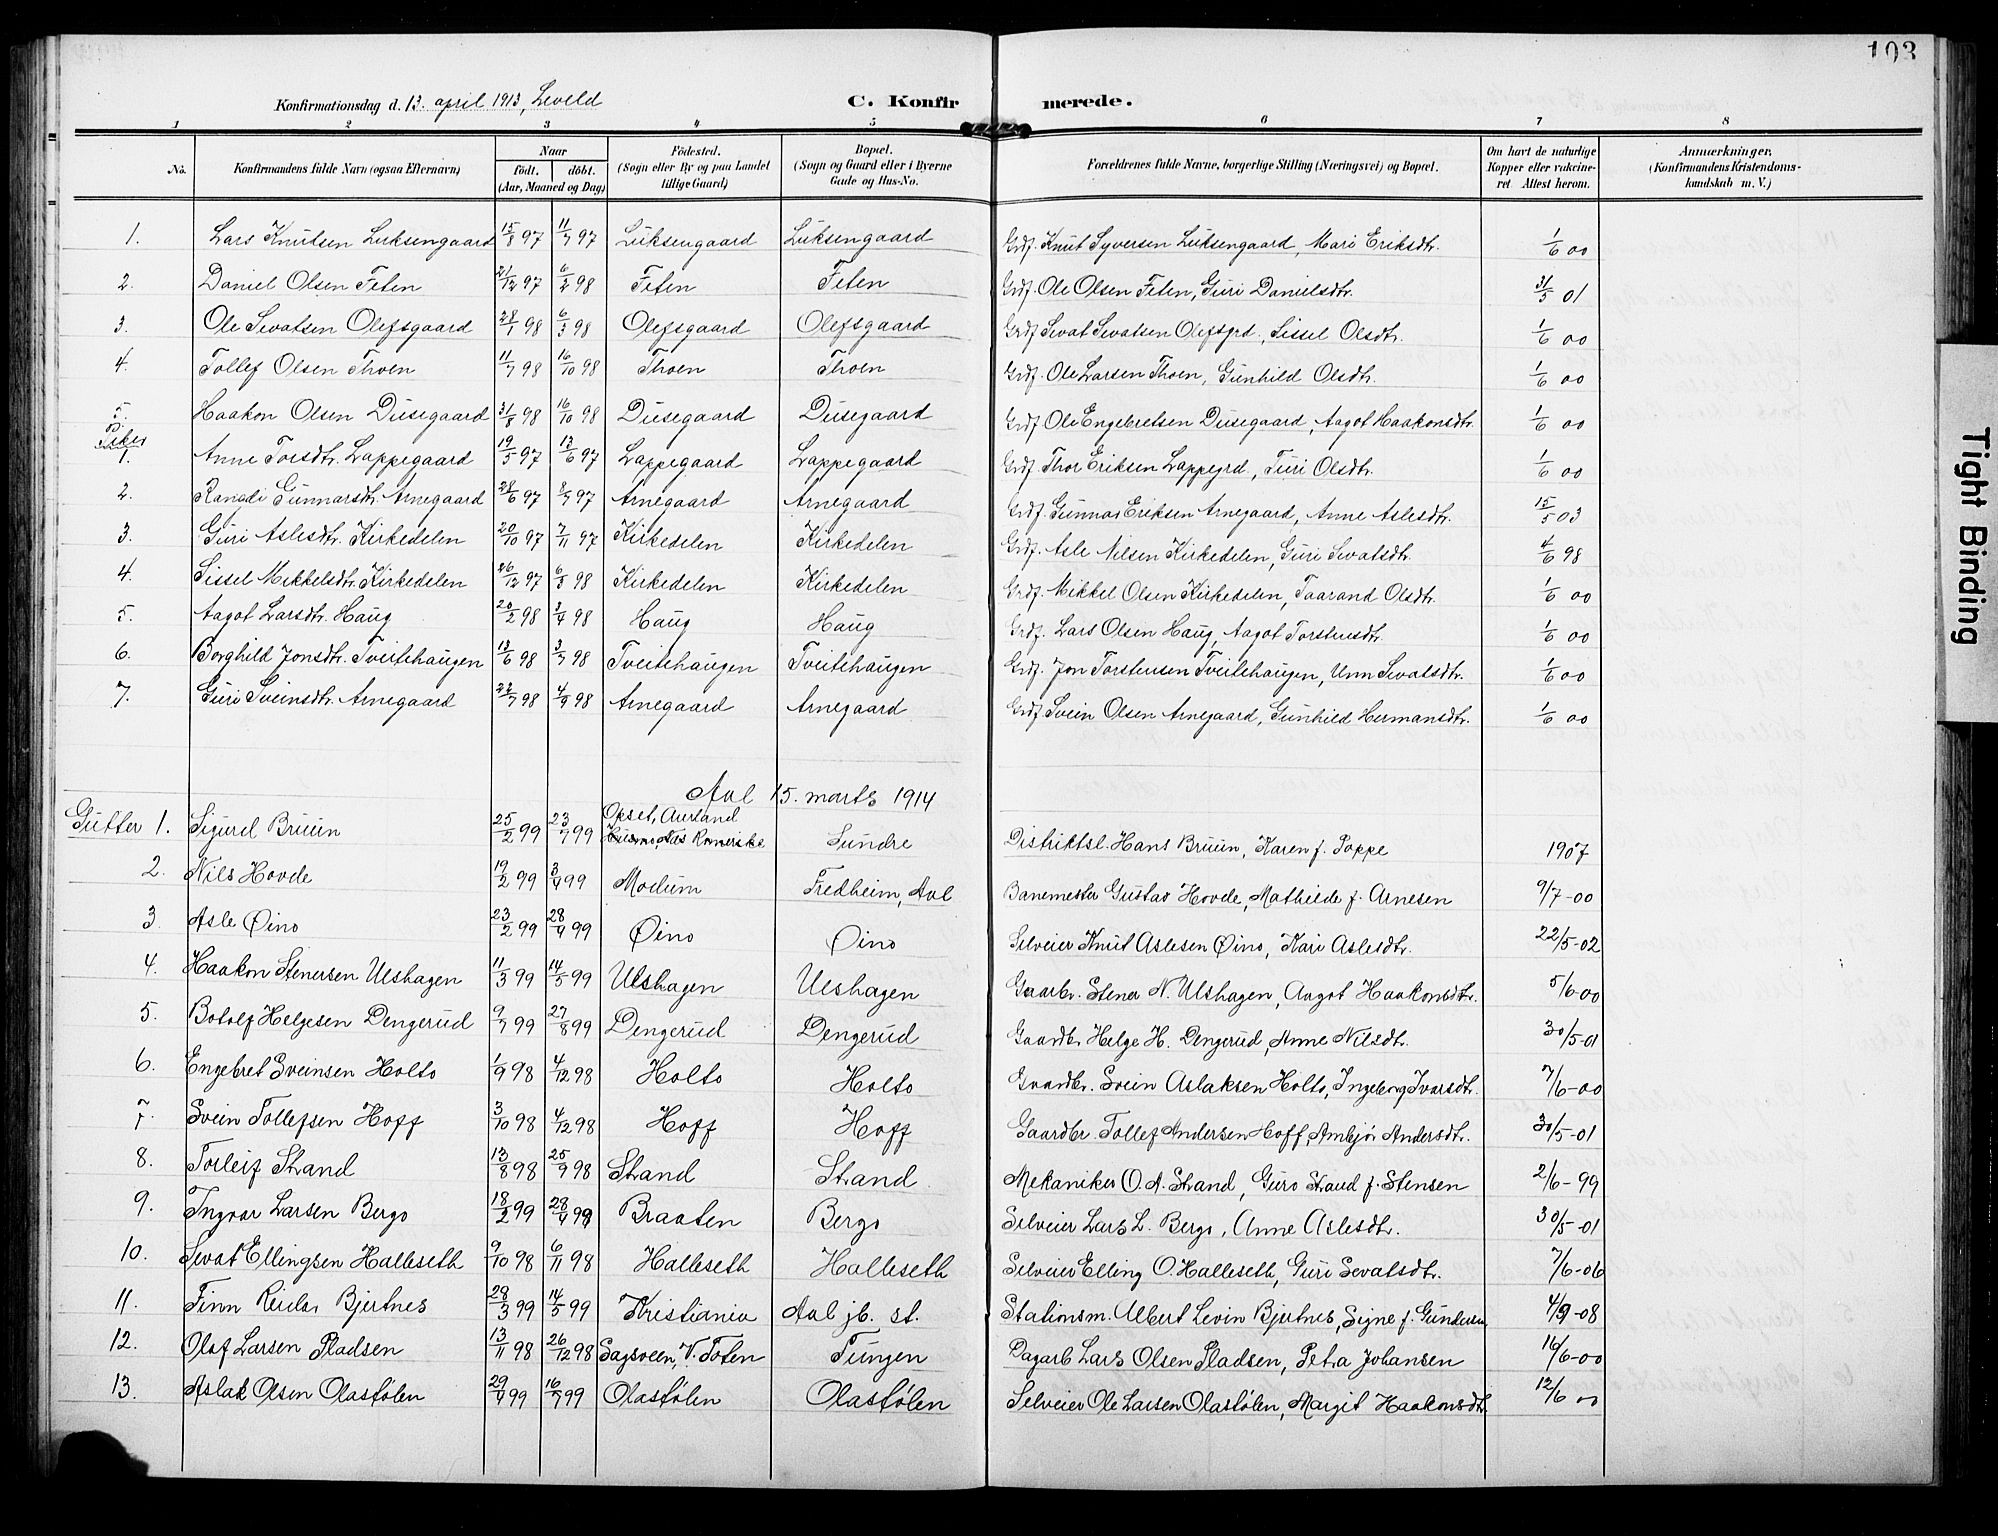 103
Konfirmationsdag d. 13. april 1913, Leveld C. Konfirmerede.
1 2 3 4 5 6 7 8
No. Konfirmandens fulde Navn (ogsaa Efternavn) Naar födt. döbt. (Aar, Maaned og Dag) Födested. (Sogn eller By og paa Landet tillige Gaard) Bopæl. (Sogn og Gaard eller i Byerne Gade og Hus-No. Forældrenes fulde Navne, borgerlige Stilling (Næringsvei) og Bopæl. Om havt de naturlige Kopper eller vaccineret. Attest herom. Anmærkninger, (Konfirmandens Kristendomskundskab m. V.)
1. Lars Knutsen Luksengaard 15/8 97 11/7 97 Luksengaard Luksengaard Grdf. Knut Syversen Luksengaard, Mari Eriksdtr. 1/6 00
2. Daniel Olsen Feten 21/12 97 6/2 98 Feten Feten Grdf. Ole Olsen Feten, Guri Danielsdtr. 31/5 01
3. Ole Sevatsen Olefsgaard 28/1 98 6/3 98 Olefsgaard Olefsgaard Grdf Sevat Sevatsen Olefsgrd., Sissel Olsdtr. 1/6 00
4. Tollef Olsen Thoen 11/7 98 16/10 98 Thoen Thoen Grdf. Ole Larsen Thoen, Gunhild Olsdtr. 1/6 00
5. Haakon Olsen Dusegaard 31/8 98 16/10 98 Dusegaard Dusegaard Grdf Ole Engebretsen Dusegaard, Aagot Haakonsdtr. 1/6 00
Piker
1. Anne Torsdtr. Lappegaard 19/5 97 13/6 97 Lappegaard Lappegaard Grdf. Thor Eriksen Lappegrd., Turi Olsdtr. 1/6 00
2. Rangdi Gunnarsdtr. Arnegaard 28/6 97 8/7 97 Arnegaard Arnegaard Grdf. Gunnar Eriksen Arnegaard, Anne Aslesdtr. 15/5 03
3. Guri Aslesdtr. Kirkedelen 20/10 97 7/11 97 Kirkedelen Kirkedelen Grdf. Asle Nilsen Kirkedelen, Guri Sevatsdtr. 4/6 98
4. Sissel Mikkelsdtr. Kirkedelen 26/12 97 6/3 98 Kirkedelen Kirkedelen Grdf. Mikkel Olsen Kirkedelen, Taarand Olsdtr. 1/6 00
5. Aagot Larsdtr. Haug 20/2 98 3/4 98 Haug Haug Grdf. Lars Olsen Haug, Aagot Torstensdtr. 1/6 00
6. Borghild Jonsdtr. Tveitehaugen 13/6 98 3/7 98 Tveitehaugen Tveitehaugen Grdf. Jon Torstensen Tveitehaugen, Unn Sevatsdtr. 1/6 00
7. Guri Sveinsdtr. Arnegaard 22/7 98 4/9 98 Arnegaard Arnegaard Grdf Svein Olsen Arnegaard, Gunhild Hermansdtr. 1/6 00
Aal 15. marts 1914
Gutter 1. Sigurd Bruun 25/2 99 23/7 99 Opset, Aurland Nes Romerike Sundre Distriktsl. Hans Bruun, Karen f. Poppe 1907
2. Nils Hovde 19/2 99 3/4 99 Modum Fredheim, Aal Banemester Gustav Hovde, Mathilde f. Arnesen 9/7-00
3. Asle Øino 23/2 99 28/4 99 Øino Øino Selveier Knut Aslesen Øino, Kari Aslesdtr. 22/5-02
4. Haakon Stenersen Ulshagen 11/3 99 14/5 99 Ulshagen Ulshagen Gaarbr. Stener N. Ulshagen, Aagot Haakonsdtr. 5/6-00
5. Botolf Helgesen Dengerud 9/7 99 27/8 99 Dengerud Dengerud Gaardbr Helge H. Dengerud, Anne Nilsdtr. 30/5-01
6. Engebret Sveinsen Holto 1/9 98 4/12 98 Holto Holto Gaardbr. Svein Aslaksen Holto, Ingeborg Ivarsdtr. 7/6-00
7. Svein Tollefsen Hoff 3/10 98 4/12 98 Hoff Hoff Gaardbr. Tollef Andersen Hoff, Ambjør Andersdtr. 30/5-01
8. Torleif Strand 13/8 98 25/9 98 Strand Strand Mekaniker O. A. Strand, Guro Strand f. Stensen 2/6-99
9. Ingvar Larsen Bergo 18/2 99 28/4 99 Braaten Bergo Selveier Lars L. Bergo, Anne Aslesdtr. 30/5-01
10. Sevat Ellingsen Halleseth 9/10 98 6/11 98 Halleseth Halleseth Selveier Elling O. Halleseth, Guri Sevatsdtr. 7/6-06
11. Finn Reidar Bjertnes 28/3 99 14/5 99 Kristiania Aal jb. st. Stationsm. Albert Levin Bjertnes, Signe f. Gundersen 4/9-08
12. Olaf Larsen Pladsen 13/11 98 26/12 98 Sagsveen, V. Toten Tungen Dagarb Lars Olsen Pladsen, Petra Johansen 16/6-00
13. Aslak Olsen Olastølen 29/4 99 16/7 99 Olastølen Olastølen Selveier Ole Larsen Olastølen, Margit Haakonsdtr. 12/6 00
Tight Binding